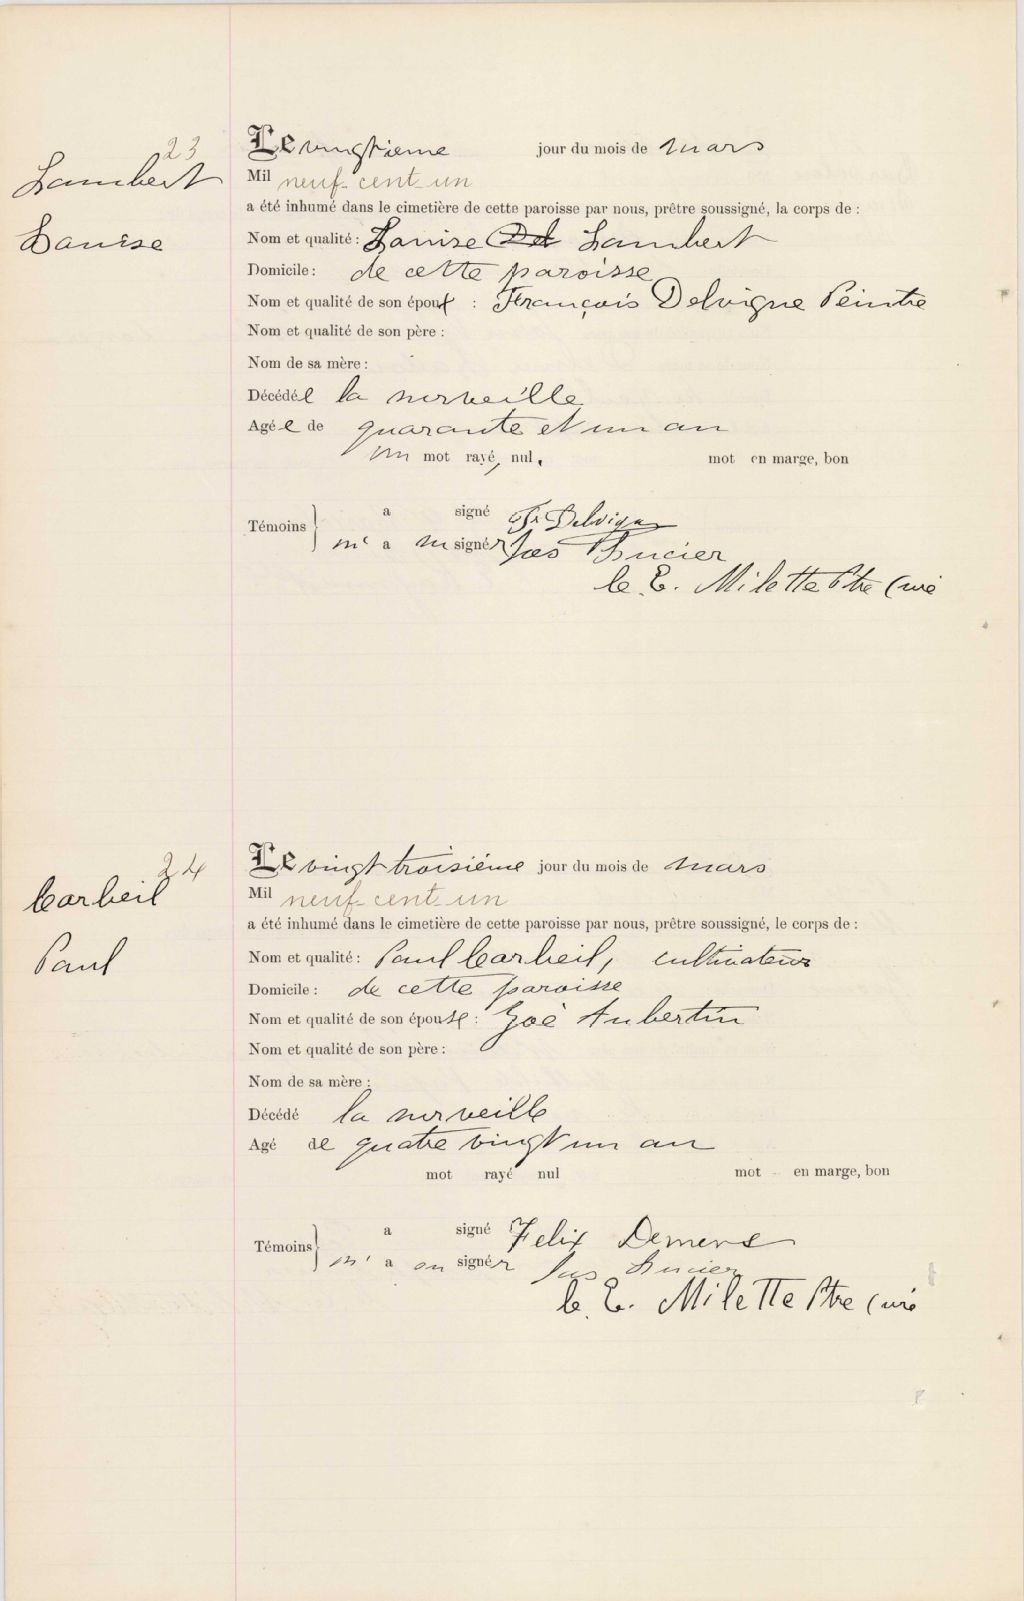 23
Lambert
Louise
Le vingtieme jour du mois de mars
Mil neuf-cent-un
a été inhumé dans le cimetière de cette paroisse par nous, prêtre soussigné, la corps de :
Nom et qualité : Louise Del Lambert
Domicile : de cette paroisse
Nom et qualité de son époux : François Delvigne Peintre
Nom et qualité de son père :
Nom de sa mère :
Décédée la surveille
Agée de quarante et un an
un mot rayé, nul, mot en marge, bon
Témoins a signé Fr Delvigne
n' a signér Jos Lucier
C. E. Milette Ptre Curé
24
Corbeil
Paul
Le vingt troisième jour du mois de mars
Mil neuf-cent-un
a été inhumé dans le cimetière de cette paroisse par nous, prêtre soussigné, le corps de :
Nom et qualité : Paul Corbeil, cultivateur
Domicile : de cette paroisse
Nom et qualité de son épouse : Zoé Aubertin
Nom et qualité de son père :
Nom de sa mère :
Décédé la surveille
Agé de quatre vingt un an
mot rayé nul mot en marge, bon
Témoins a signé Felix Demers
n' a signér Jos Lucier
C. E. Milette Ptre Curé